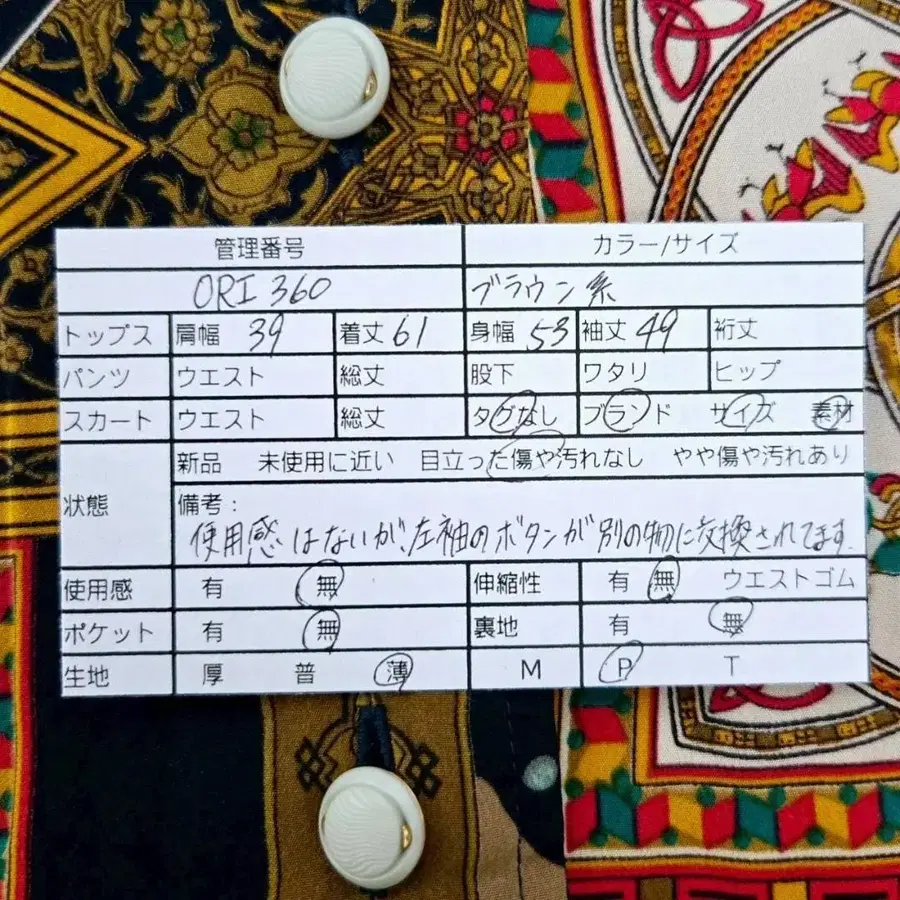 管理番号 カラー/サイズ
ORI 360 ブラウン系
トップス 肩幅 39 着丈 61 身幅 53 袖丈 49 裄丈
パンツ ウエスト 総丈 股下 ワタリ ヒップ
スカート ウエスト 総丈 タグなし ブランド サイズ 素材
新品 未使用に近い 目立った傷や汚れなし やや傷や汚れあり
状態 備考：
使用感はないが、左袖のボタンが別の物に交換されてます.
使用感 有 無 伸縮性 有 無 ウエストゴム
ポケット 有 無 裏地 有 無
生地 厚 普 薄 M P T